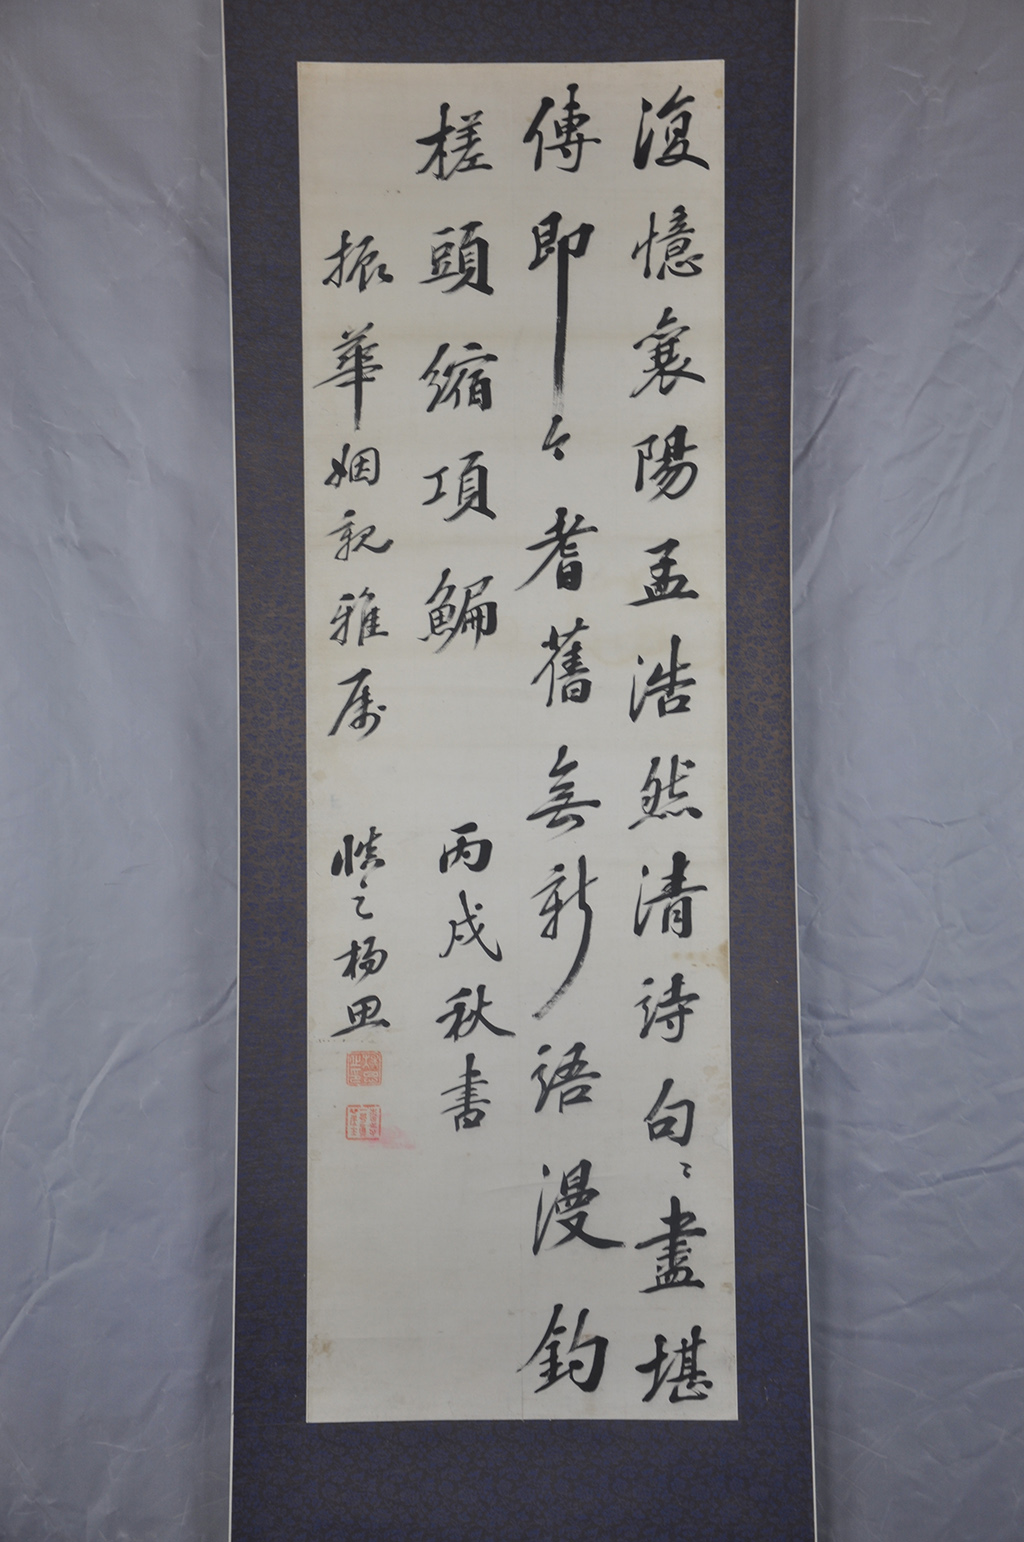 復憶襄陽孟浩然清詩句〻盡堪
傳即今耆舊無新語漫釣
槎頭縮項鯿
丙戌秋書
振華姻親雅属
慎之楊